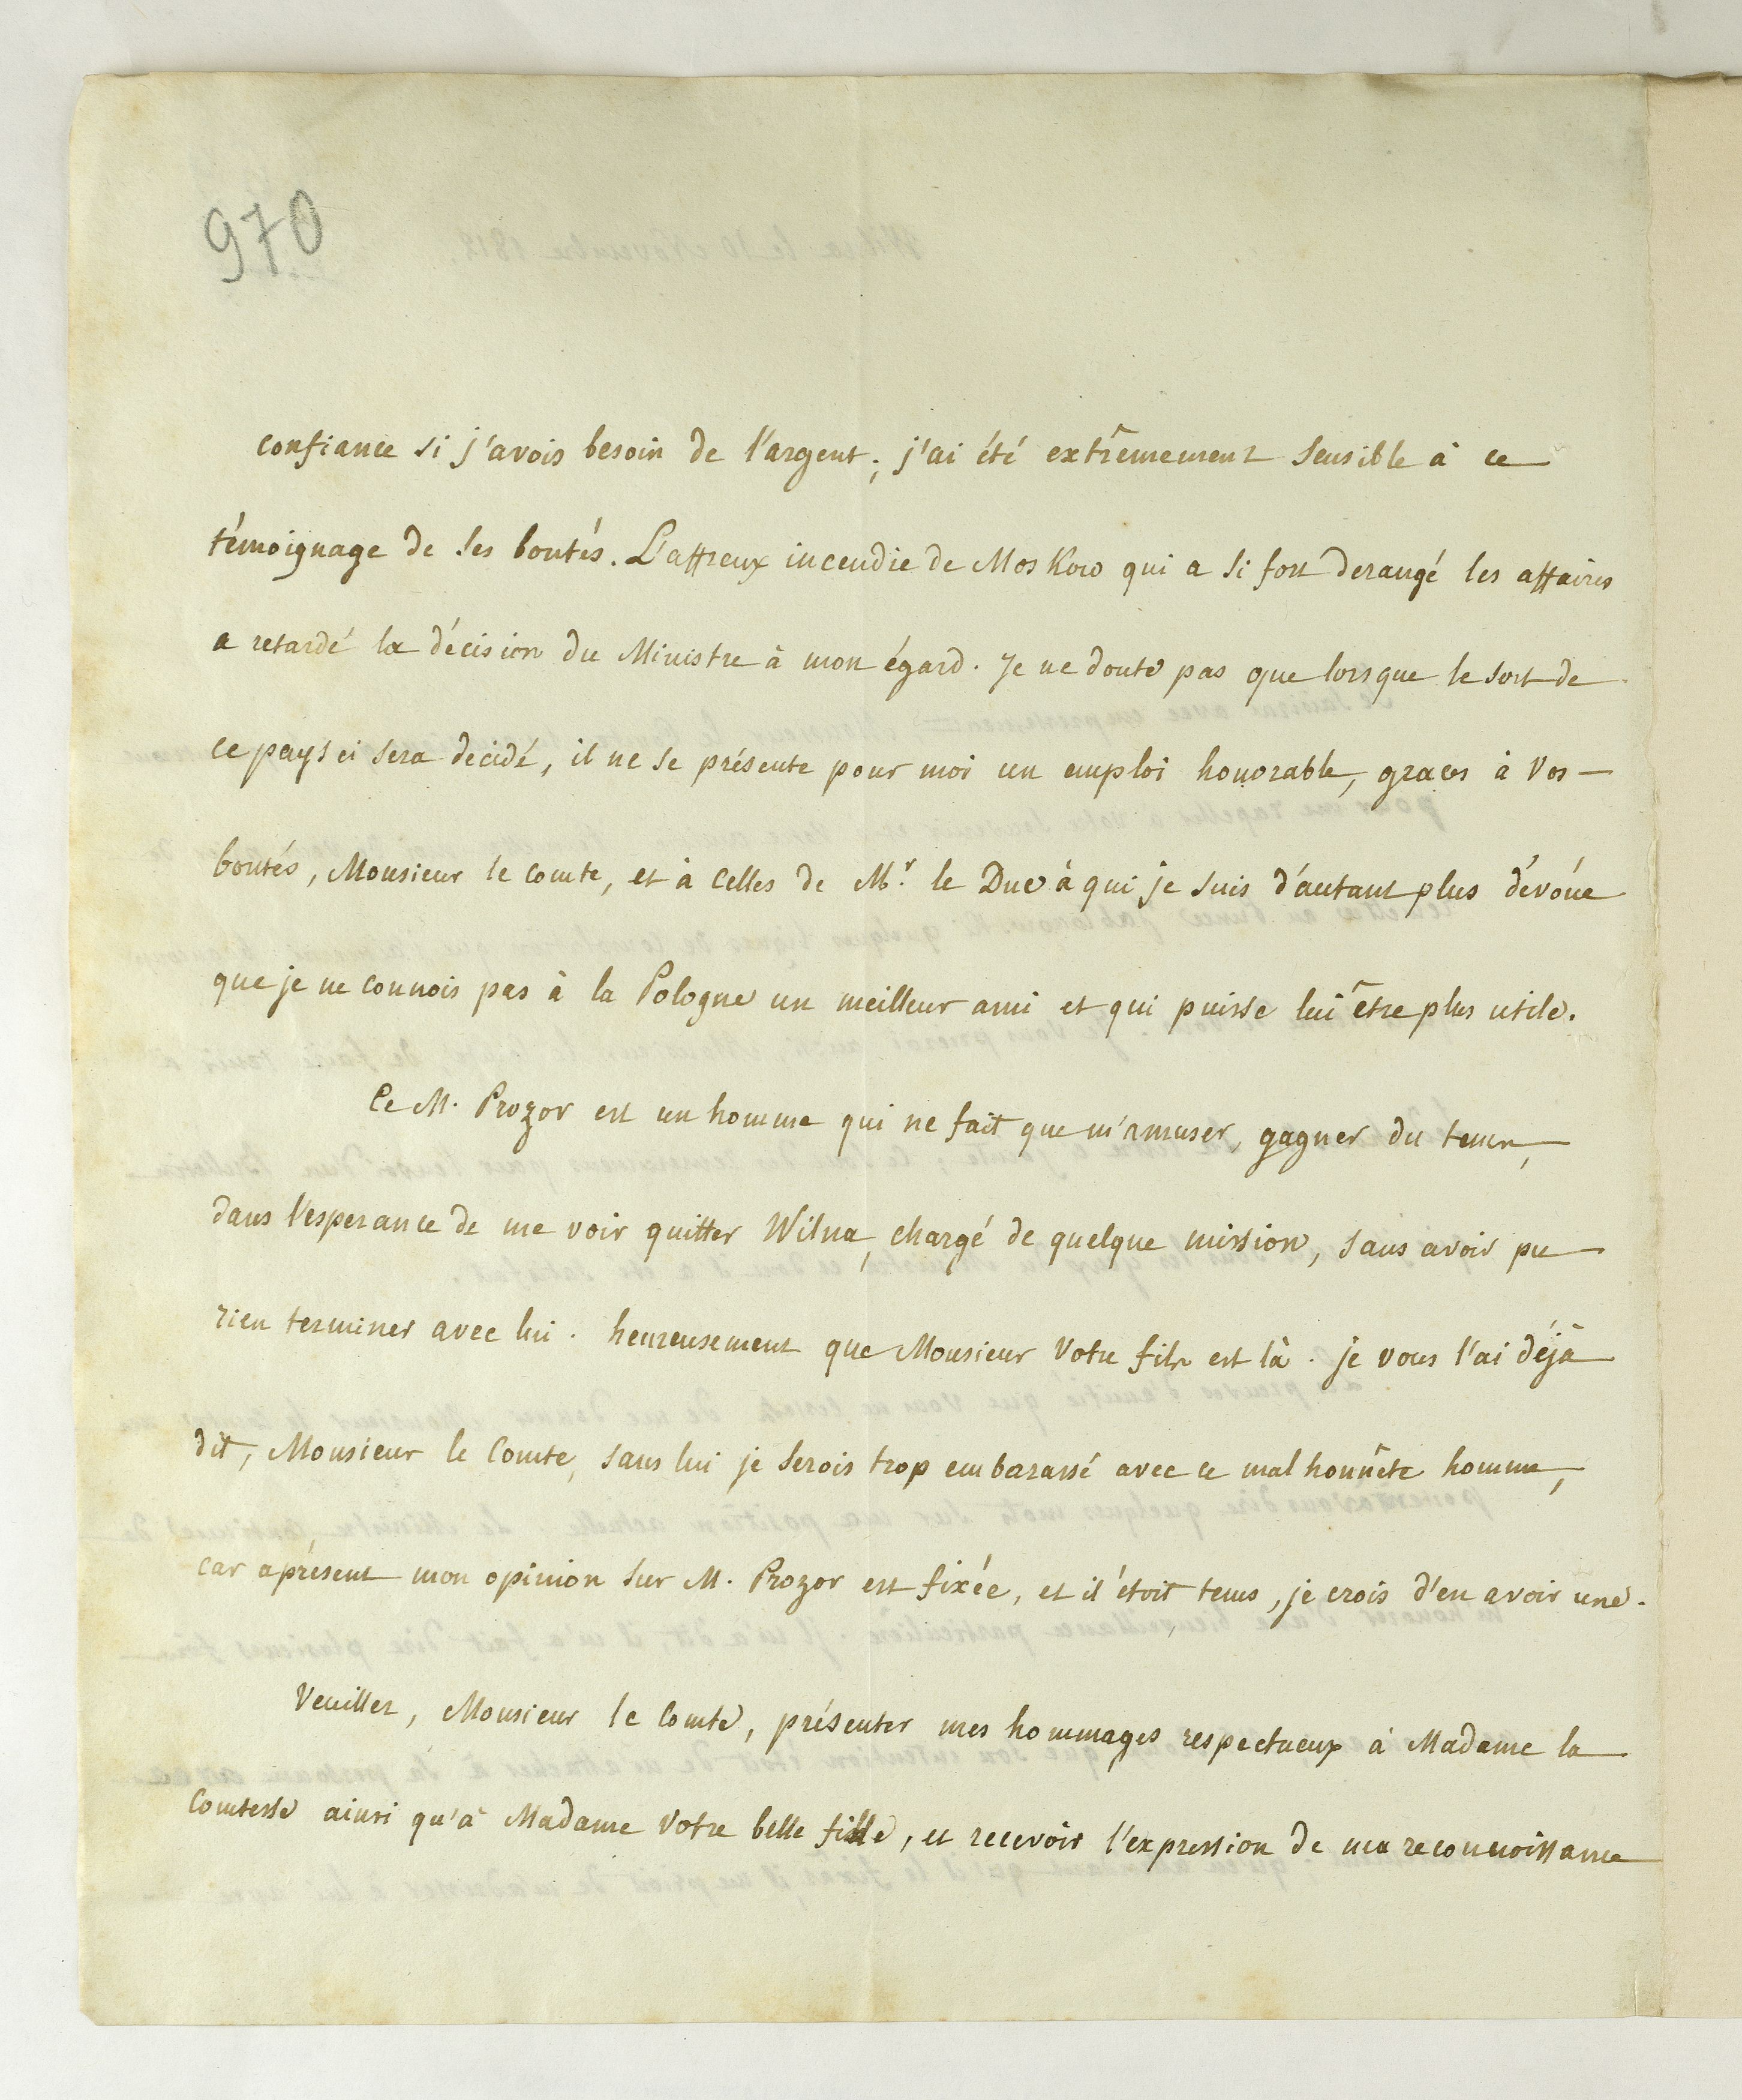 970
confiance si j'avois besoin de l'argent; j'ai été extrêmement sensible à ce
témoignage de ses bontés. L'affreux incendie de Moskow qui a si fort derangé les affaires
a retardé la décision du Ministre à mon égard. Je ne doute pas que lorsque le sort de
ce pays ci sera decidé, il ne se présente pour moi un emploi honorable, graces à vos
bontés, Monsieur le Comte, et à celles de Mr. le Duc à qui je suis d'autant plus dévoúe
que je ne connois pas à la Pologne un meilleur ami et qui puisse lui être plus utile.
Ce M. Prozor est un homme qui ne fait que m'amuser, gagner du tems,
dans l'esperance de me voir quitter Wilna, chargé de quelque mission, sans avoir pu
rien terminer avec lui. heureusement que Monsieur Votre fils est là. je vous l'ai déjà
dit, Monsieur le Comte, sans lui je serois trop embarassé avec ce mal honnête homme,
car aprésent mon opinion sur M. Prozor est fixée, et il étoit tems, je crois d'en avoir une.
Veuillez, Monsieur le Comte, présenter mes hommages respectueux à Madame la
Comtesse ainsi qu'à Madame Votre belle fille, et recevoir l'expression de ma reconnoissance